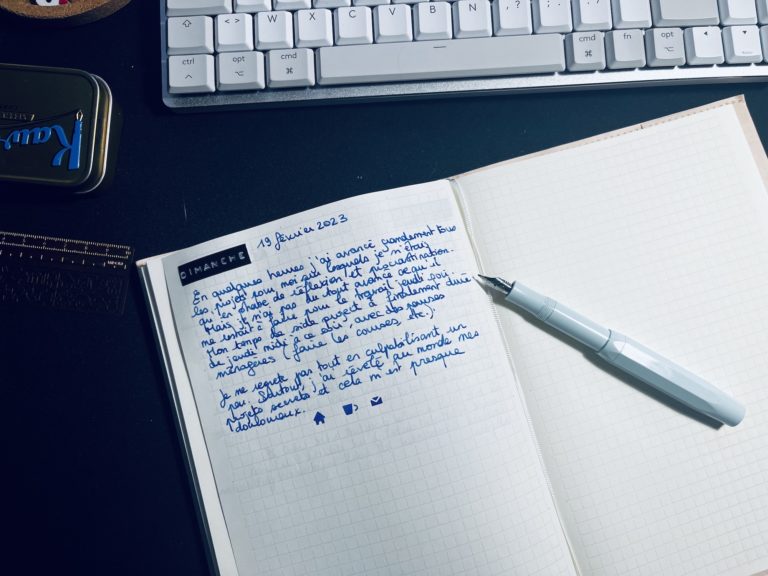 <> W X C V B N ,? ;.
ctrl opt cmd cmd fn opt
Kaw
DIMANCHE 19 février 2023
En quelques heures j'ai avancé grandement tous
les projets pour moi sur lesquels je n'étais
qu'en phase de réflexion et procrastination.
Mais je n'ai pas du tout avancé ce qu'il
me restait à faire pour le travail jeudi
Mon temps de side project a finalement duré
du jeudi midi à ce soir avec des pauses
ménagères (faire les courses etc.)
Je ne regrette pas tout en culpabilisant un
peu. Surtout, j'ai révélé au monde mes
projets secrets et cela m'est presque
douloureux.